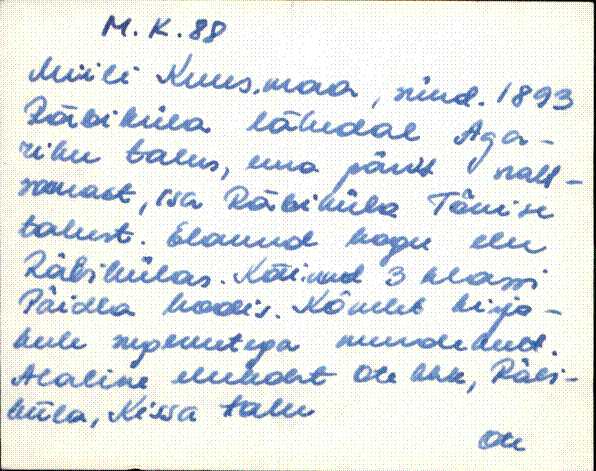 M. K. 88
Miili Kuus.maa, sünd. 1893
Räbiküla lähedal Aga-
riku talus, ema pärit
isa Räbiküla Tõnise
talust. Elanud kogu elu
Räbikülas. Käinud 3 klassi
Päidla koolis. Kõneleb kirja-
keele segamurrakut.
Alaline elukoht Ote khk, Räbi-
küla, Kissa talu
Ote